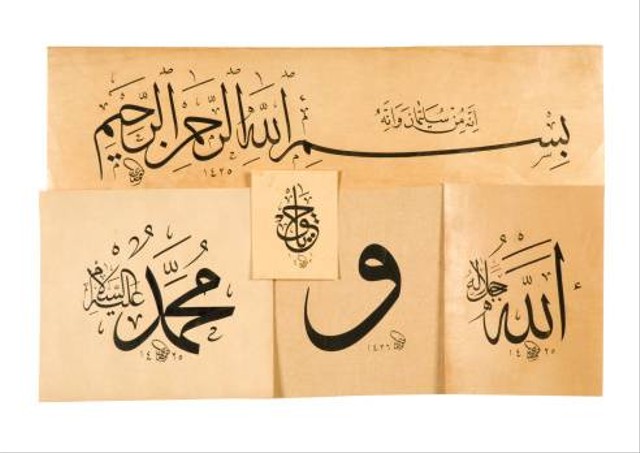 انه من سليمان وانه
بسم الله الرحمن الرحيم
١٤٢٥
الله جل جلاله
١٤٢٥
و
١٤٢٦
محمد عليه السلام
١٤٢٥